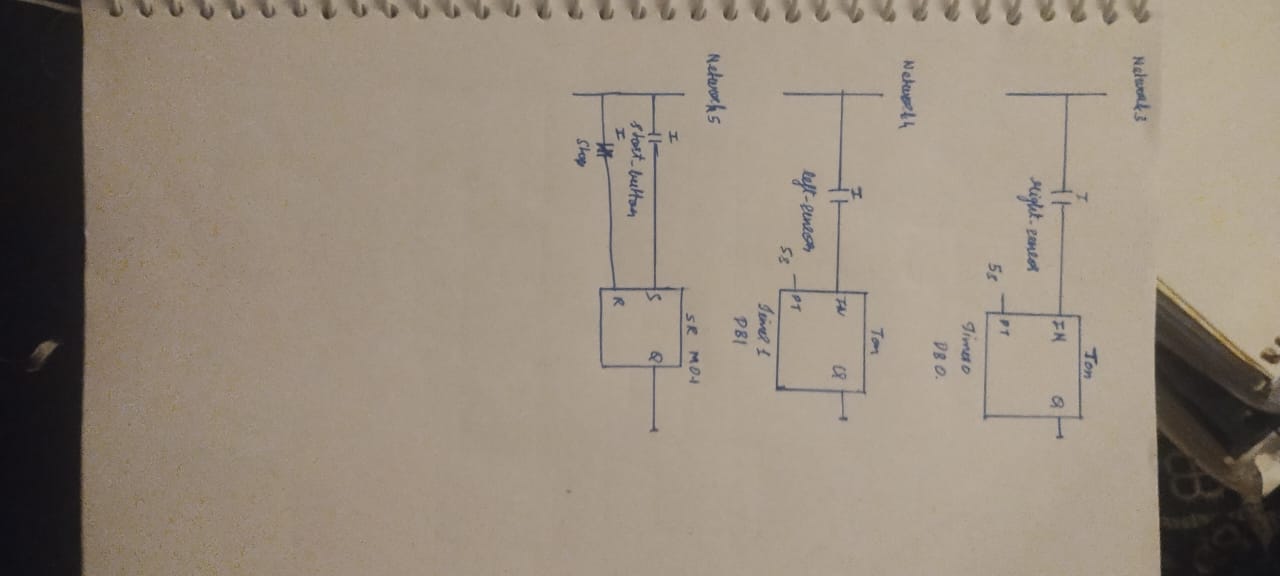 Network 3
I
right-sensor
Ton
IN Q
5s PT
Timer 0
DB 0.
Network 4
I
left-sensor
Ton
IN Q
5s PT
Timer 1
DB1
Network 5
I
start-button
SR M0.1
S Q
I
Stop
R